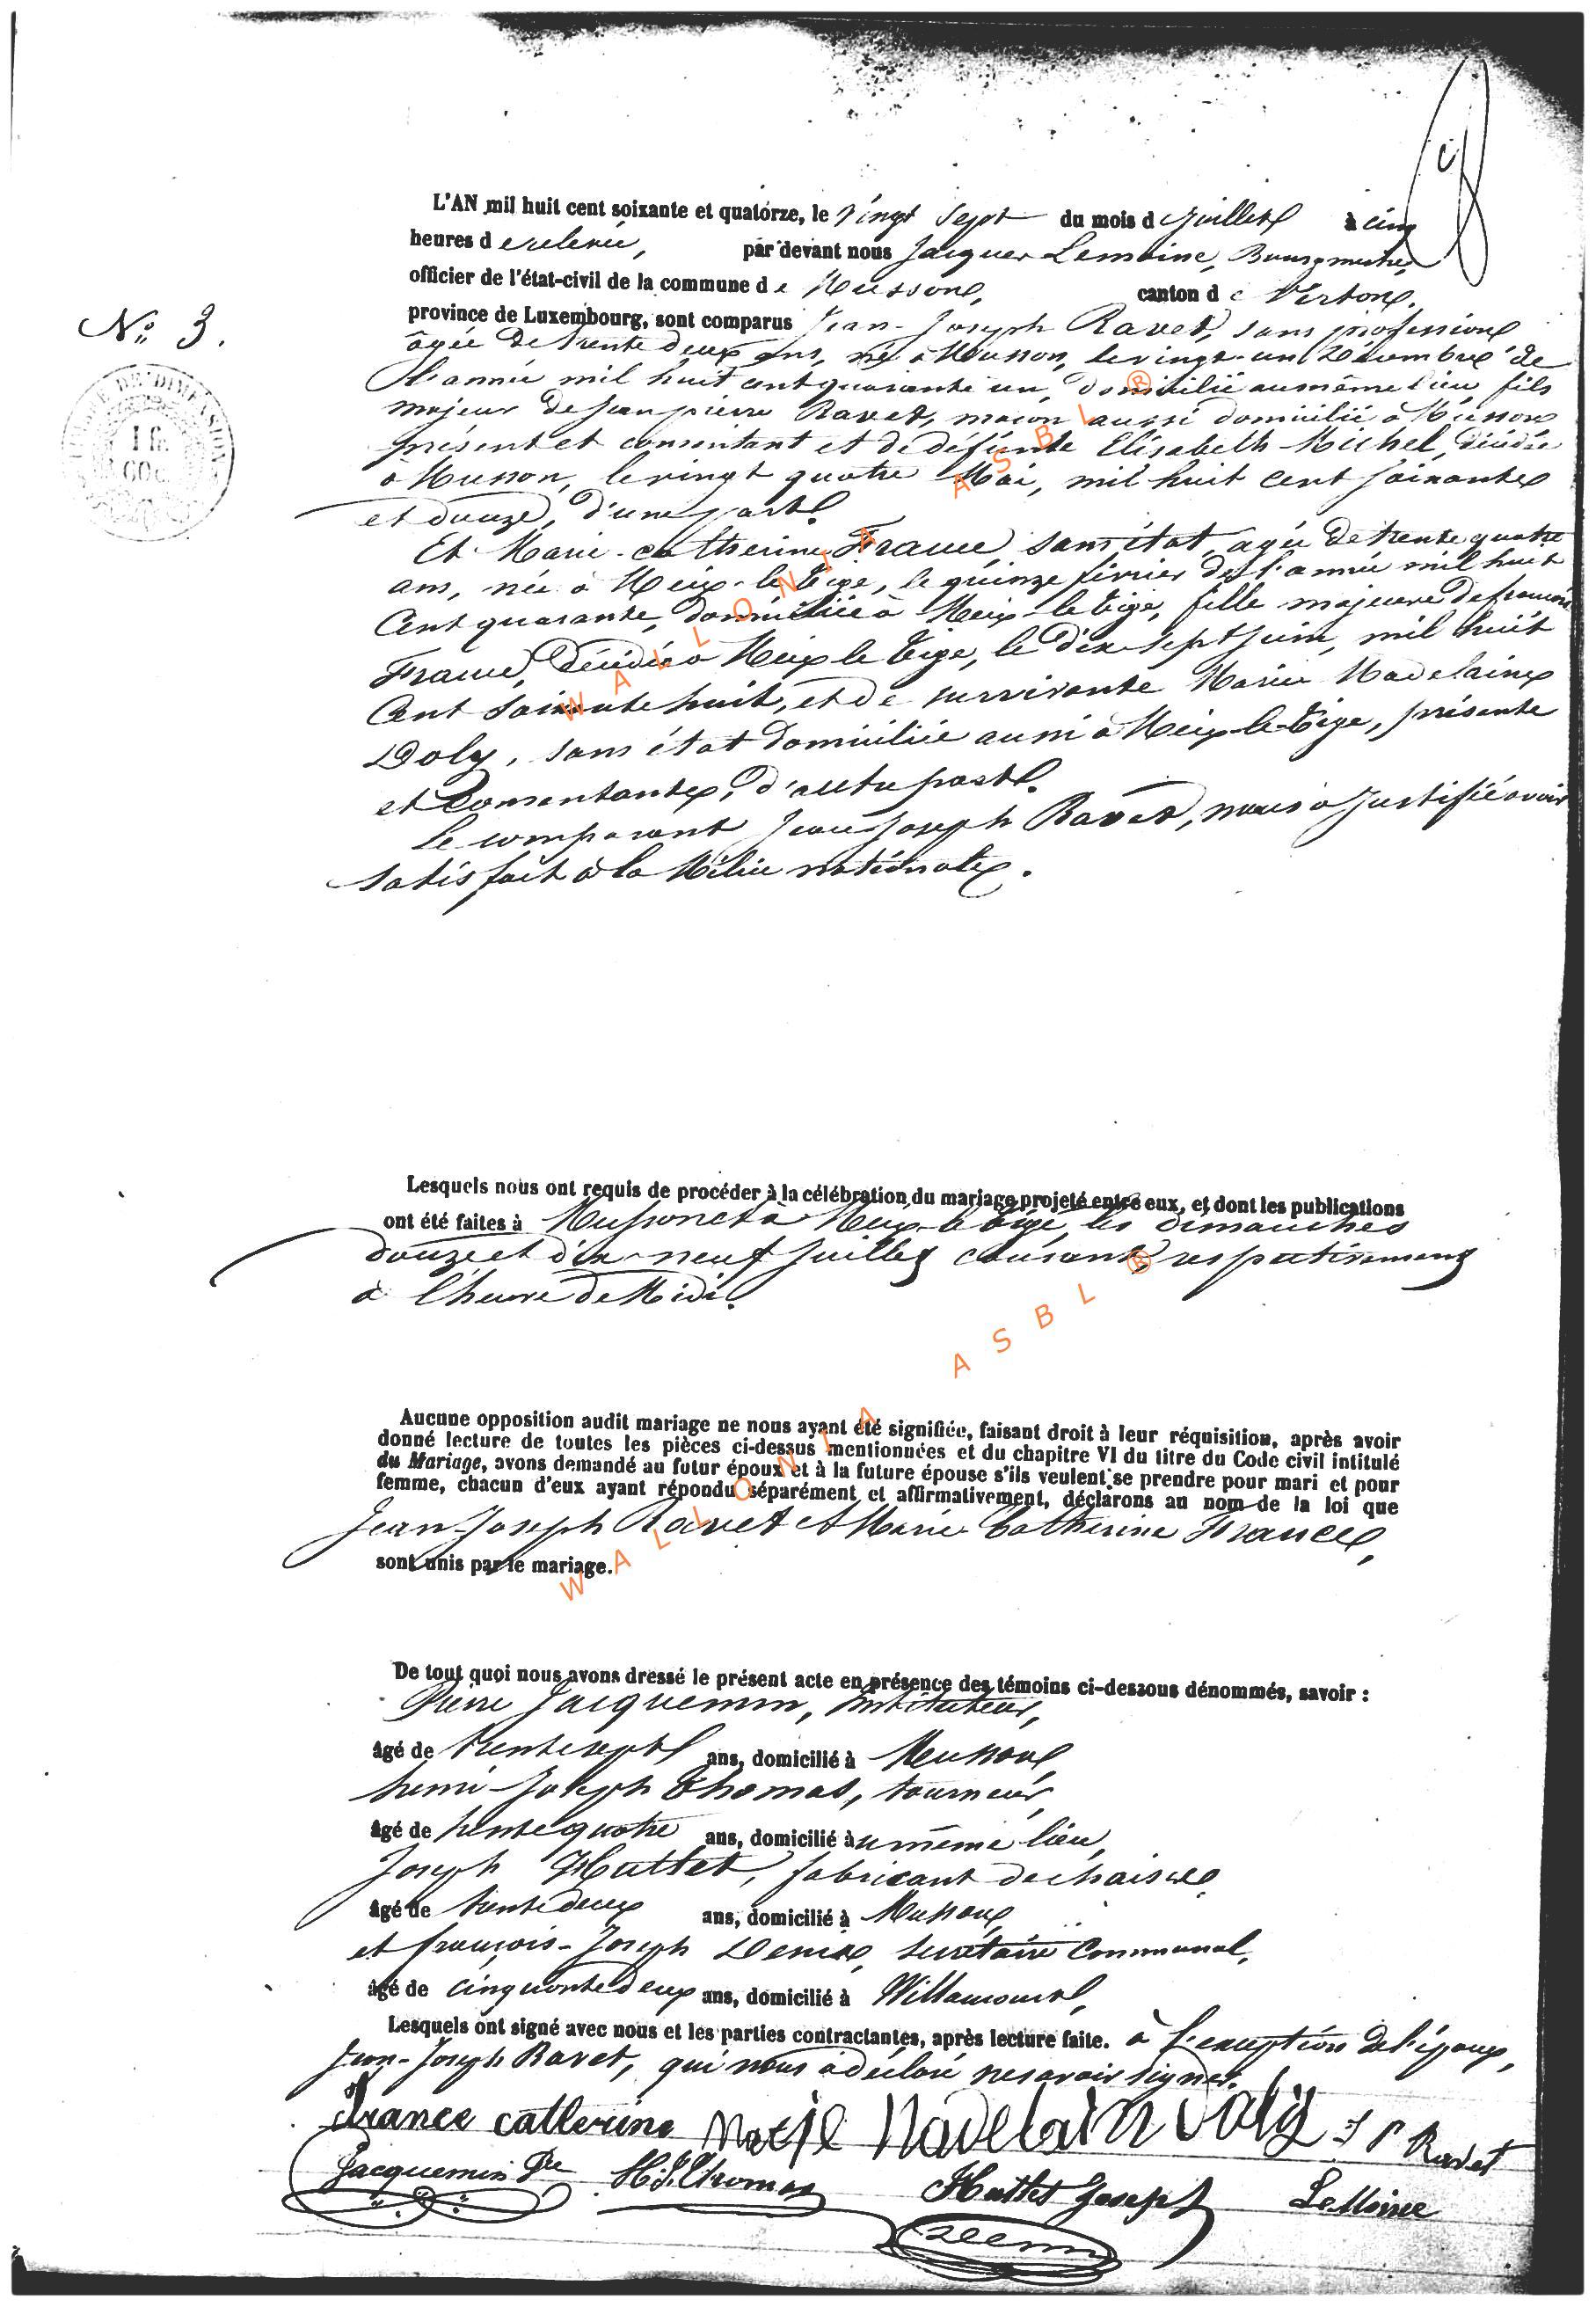 L'AN mil huit cent soixante et quatorze, le vingt sept du mois d e juillet à cinq
heures d e relevée, par devant nous Jacques Lemoine, Bourgmestre,
officier de l'état-civil de la commune d e Musson, canton d e Virton,
province de Luxembourg, sont comparus Jean-Joseph Ravet, sans profession
âgée de trente deux ans, né à Musson, le vingt-un Décembre de
l'année mil huit cent quarante un, domicilié au même lieu fils
majeur de Jean pierre Ravet, maçon aussi domicilié à Musson
présent et consentant et de défunte Elisabeth Michel, décédée
à Musson, le vingt quatre Mai, mil huit cent soixante
et douze, d'une part.
Et Marie-catherine France, sans état, agée de trente quatre
ans, née à Meix-le-Tige, le quinze février de l'année mil huit
Cent quarante, domiciliée à Meix-le-Tige, fille majeure de françois
France, décédé à Meix le Tige, le dix-sept juin, mil huit
Cent soixante huit, et de survivante Marie Madelaine
Doly, sans état domiciliée aussi à Meix-le-Tige, présente
et Consentante, d'autre part.
Le comparant Jean-Joseph Ravet, nous a justifié avoir
satisfait à la Milice nationale.
N° 3.
TIMBRE DE DIMENSION
1 fr.
60c
Lesquels nous ont requis de procéder à la célébration du mariage projeté entre eux, et dont les publications
ont été faites à Musson et à Meix-le-tige, les dimanches
douze et dix-neuf juillet courant, respectivement
à l'heure de Midi.
Aucune opposition audit mariage ne nous ayant été signifiée, faisant droit à leur réquisition, après avoir
donné lecture de toutes les pièces ci-dessus mentionnées et du chapitre VI du titre du Code civil intitulé
du Mariage, avons demandé au futur époux et à la future épouse s'ils veulent se prendre pour mari et pour
femme, chacun d'eux ayant répondu séparément et affirmativement, déclarons au nom de la loi que
Jean-Joseph Ravet et Marie Catherine France,
sont unis par le mariage.
De tout quoi nous avons dressé le présent acte en présence des témoins ci-dessous dénommés, savoir :
Pierre Jacquemin, Instituteur,
âgé de trente sept ans, domicilié à Musson,
henri-Joseph Thomas, tourneur,
âgé de trente quatre ans, domicilié à u même lieu,
Joseph Huttet, fabricant de chaises
âgé de trente deux ans, domicilié à Musson,
et françois-Joseph Denis, secrétaire Communal,
âgé de cinquante deux ans, domicilié à Willancourt,
Lesquels ont signé avec nous et les parties contractantes, après lecture faite. à l'exception de l'époux,
Jean-Joseph Ravet, qui nous a déclaré ne savoir signer.
France catherine Marie Madelain Doly J P Ravet
Jacquemin Pre H.J.Thomas Huttet Joseph LeMoine
Denis
WALLONIA ASBL ®
WALLONIA ASBL ®